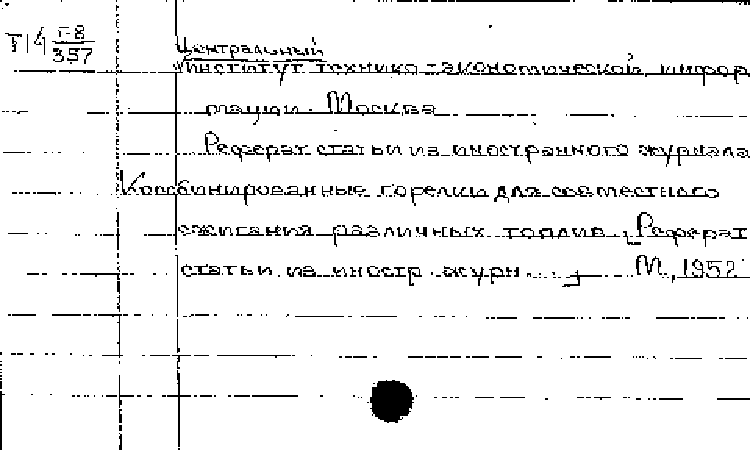 Г-8
357
Центральный
институт технико-экономической инфор
мации. Москва
Реферат статьи из иностранного журнала
Комбинированные горелки для совместного
сжигания различных топлив. [Реферат
статьи из иностр. журн...] М., 1952